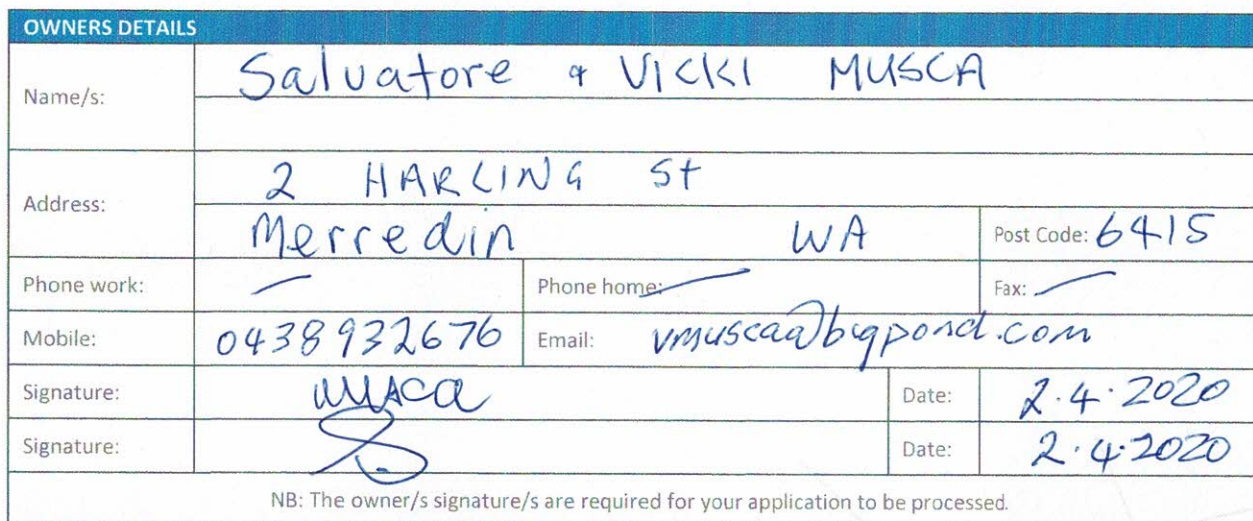 OWNERS DETAILS
Name/s: Salvatore & VICKI MUSCA
Address: 2 HARLING St
Merredin WA Post Code: 6415
Phone work: — Phone home: — Fax: —
Mobile: 0438932676 Email: vmusca@bigpond.com
Signature: Musca Date: 2.4.2020
Signature: Date: 2.4.2020
NB: The owner/s signature/s are required for your application to be processed.